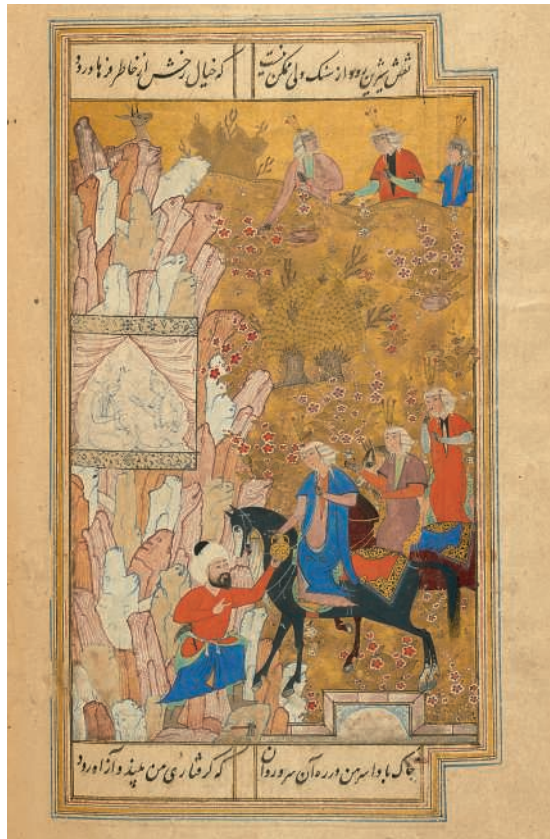 نقش شیرین رود از سنک ولی ممکن نیست که خیال رخش از خاطر فرهاد رود
خاک بادا سر من در ره آن سرو روان که کرفتاری من بیند و آزاد رود